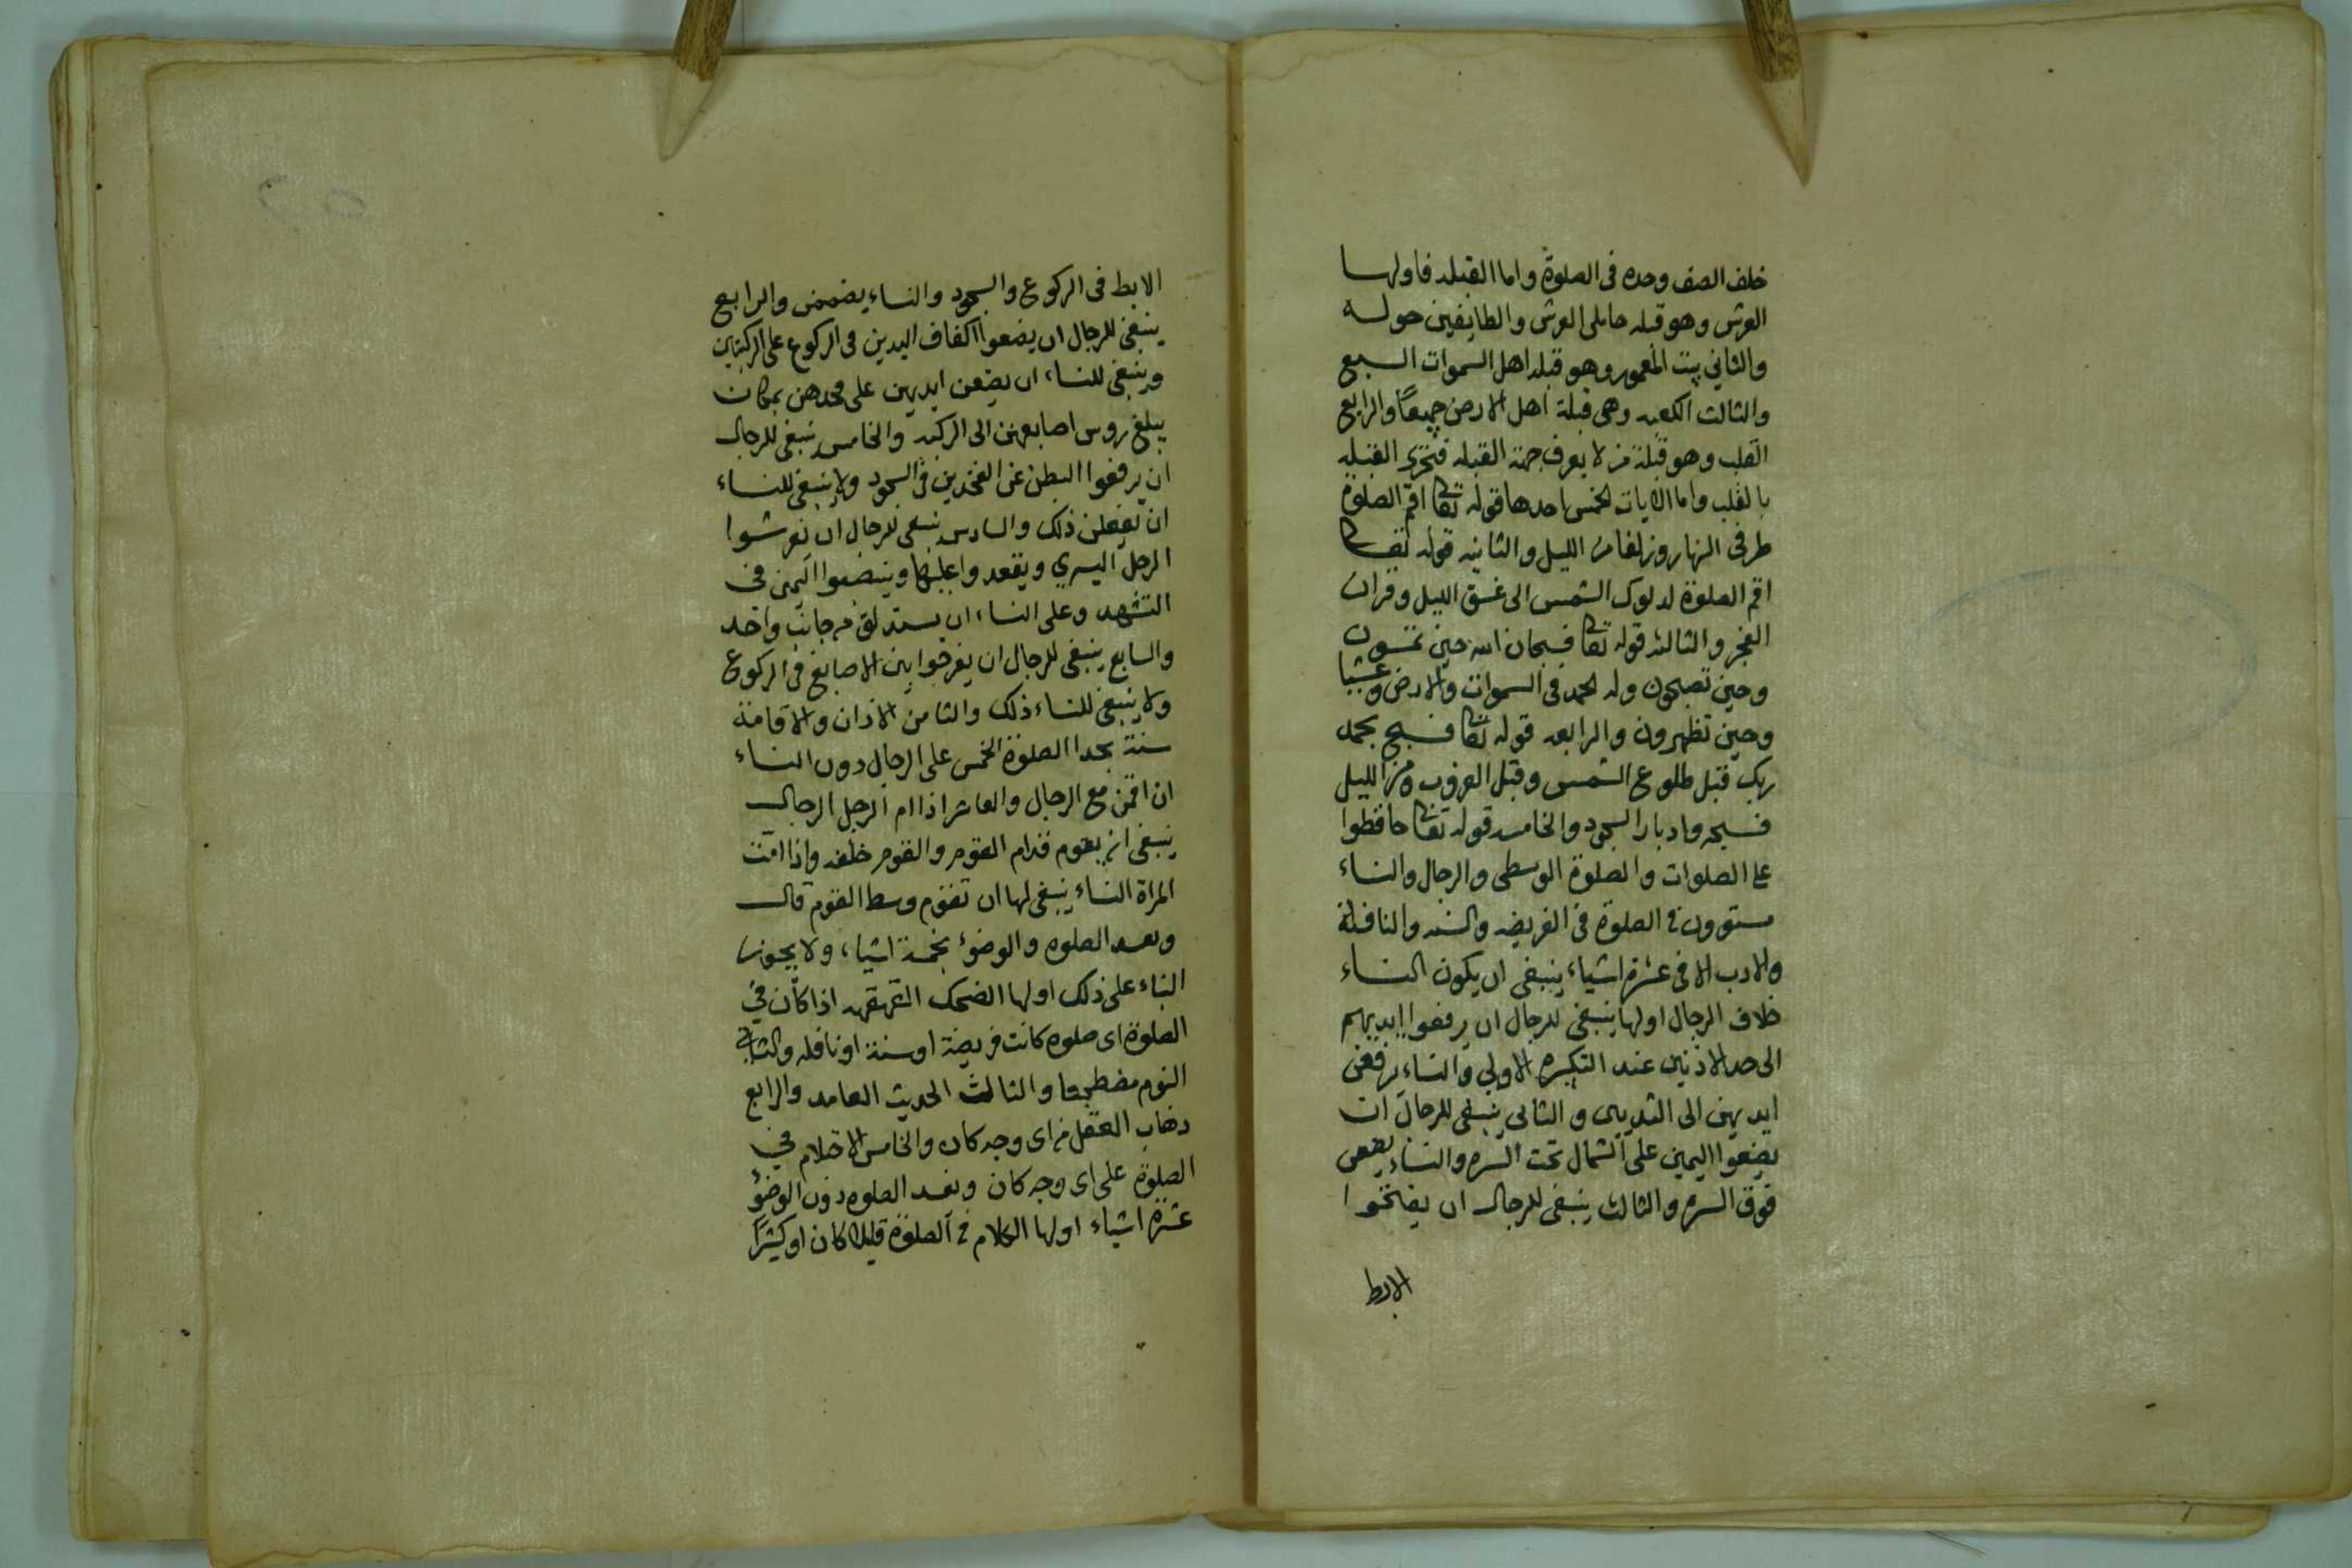 خلف الصف وحده فى الصلوة واما القبله فاولها
العرش وهو قبله حاملى العرش والطايفين حوله
والثاني بيت المعمور وهو قبله اهل السموات السبع
والثالث الكعبه وهى قبلة اهل الارض جميعًا والرابع
القلب وهو قبلة من لا يعرف جهة القبله فتحرى القبله
بالقلب واما الايات الخمس احدها قوله تعا اقم الصلوة
طرفى النهار وزلفا من الليل والثانيه قوله تعا
اقم الصلوة لدلوك الشمس الى غسق الليل وقران
الفجر والثالثه قوله تعا فسبحان الله حين تمسون
وحين تصبحون وله الحمد فى السموات والارض وعشيا
وحين تظهرون والرابعه قوله تعا فسبح بحمد
ربك قبل طلوع الشمس وقبل الغروب ومن الليل
فسبحه وادبار السجود والخامسه قوله تعا حافظوا
على الصلوات والصلوة الوسطى والرجال والنساء
مستوون فى الصلوة فى الفريضه والسنه والنافلة
والادب الا فى عشرة اشياء ينبغى ان يكون النساء
خلاف الرجال اولها ينبغى للرجال ان يرفعوا ايديهم
الى حد الاذنين عند التكبيره الاولى والنساء يرفعن
ايديهن الى الثديين والثانى ينبغى للرجال ان
يضعوا اليمين على الشمال تحت السره والنساء يضعن
فوق السره والثالث ينبغى للرجال ان يفاتحوا
الابط
الابط فى الركوع والسجود والنساء يضممن والرابع
ينبغى للرجال ان يضعوا اكفاف اليدين فى الركوع على الركبتين
وينبغى للنساء ان يضعن ايديهن على فخذهن بمكان
يبلغ روس اصابعهن الى الركبه والخامس ينبغى للرجال
ان يرفعوا البطن عن الفخذين فى السجود ولا ينبغى للنساء
ان يفعلن ذلك والسادس ينبغى للرجال ان يفرشوا
الرجل اليسري ويقعدوا عليها وينصبوا اليمنى فى
التشهد وعلى النساء ان يستدلق من جانب واحد
والسابع ينبغى للرجال ان يفرجوا بين الاصابع فى الركوع
ولا ينبغى للنساء ذلك والثامن الاذان والاقامة
سنة بحدا الصلوة الخمس على الرجال دون النساء
ان اقمن مع الرجال والعاشر اذا ام الرجل الرجال
ينبغى ان يقوم قدام القوم والقوم خلفه واذا امت
المراة النساء ينبغى لها ان تقوم وسط القوم قال
وتفسد الصلوه والوضوء بخمسة اشياء ولا يجوز
البناء على ذلك اولها الضحك القهقهه اذا كان في
الصلوة اى صلوه كانت فريضة او سنة او نافله والثانى
النوم مضطجعا والثالث الحديث العامد والرابع
ذهاب العقل من اى وجه كان والخامس الاحتلام في
الصلوة على اى وجه كان وتفسد الصلوه دون الوضوء
عشرة اشياء اولها الكلام فى الصلوة قليلا كان او كثيرًا